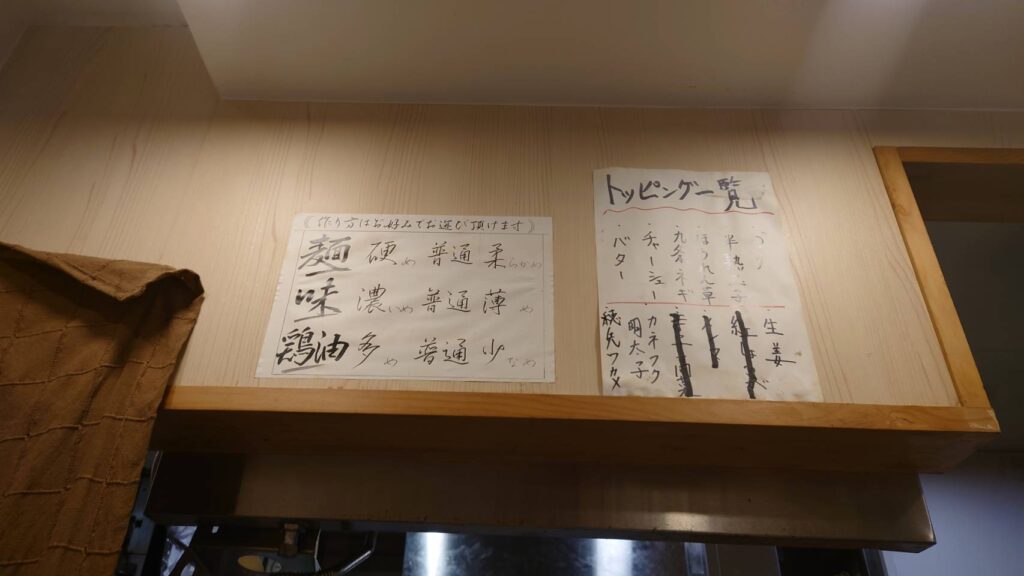 (作り方はお好みでお選び頂けます)
麺 硬め 普通 柔らかめ
味 濃いめ 普通 薄め
鶏油 多め 普通 少なめ
トッピング一覧
・のり
・半熟玉子
・ほうれん草
・九条ネギ
・チャーシュー
・バター
生姜
カネフク
明太子